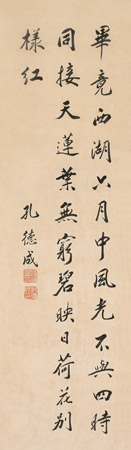 畢竟西湖六月中風光不與四時
同接天蓮葉無窮碧映日荷花別
樣紅
孔德成